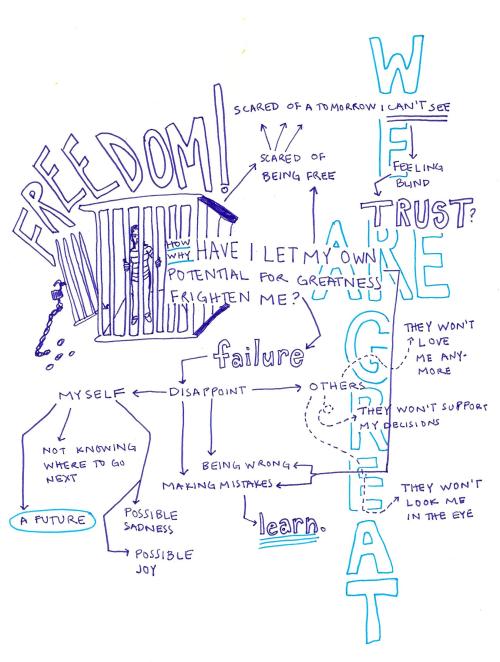 WE ARE GREAT
FREEDOM!
SCARED OF A TOMORROW I CAN'T SEE
SCARED OF
BEING FREE
FEELING
BLIND
TRUST?
HOW
WHY
HAVE I LET MY OWN
POTENTIAL FOR GREATNESS
FRIGHTEN ME?
failure
THEY WON'T
LOVE
ME ANY-
MORE
MYSELF
DISAPPOINT
OTHERS
THEY WON'T SUPPORT
MY DECISIONS
NOT KNOWING
WHERE TO GO
NEXT
BEING WRONG
MAKING MISTAKES
THEY WON'T
LOOK ME
IN THE EYE
A FUTURE
POSSIBLE
SADNESS
learn.
POSSIBLE
JOY